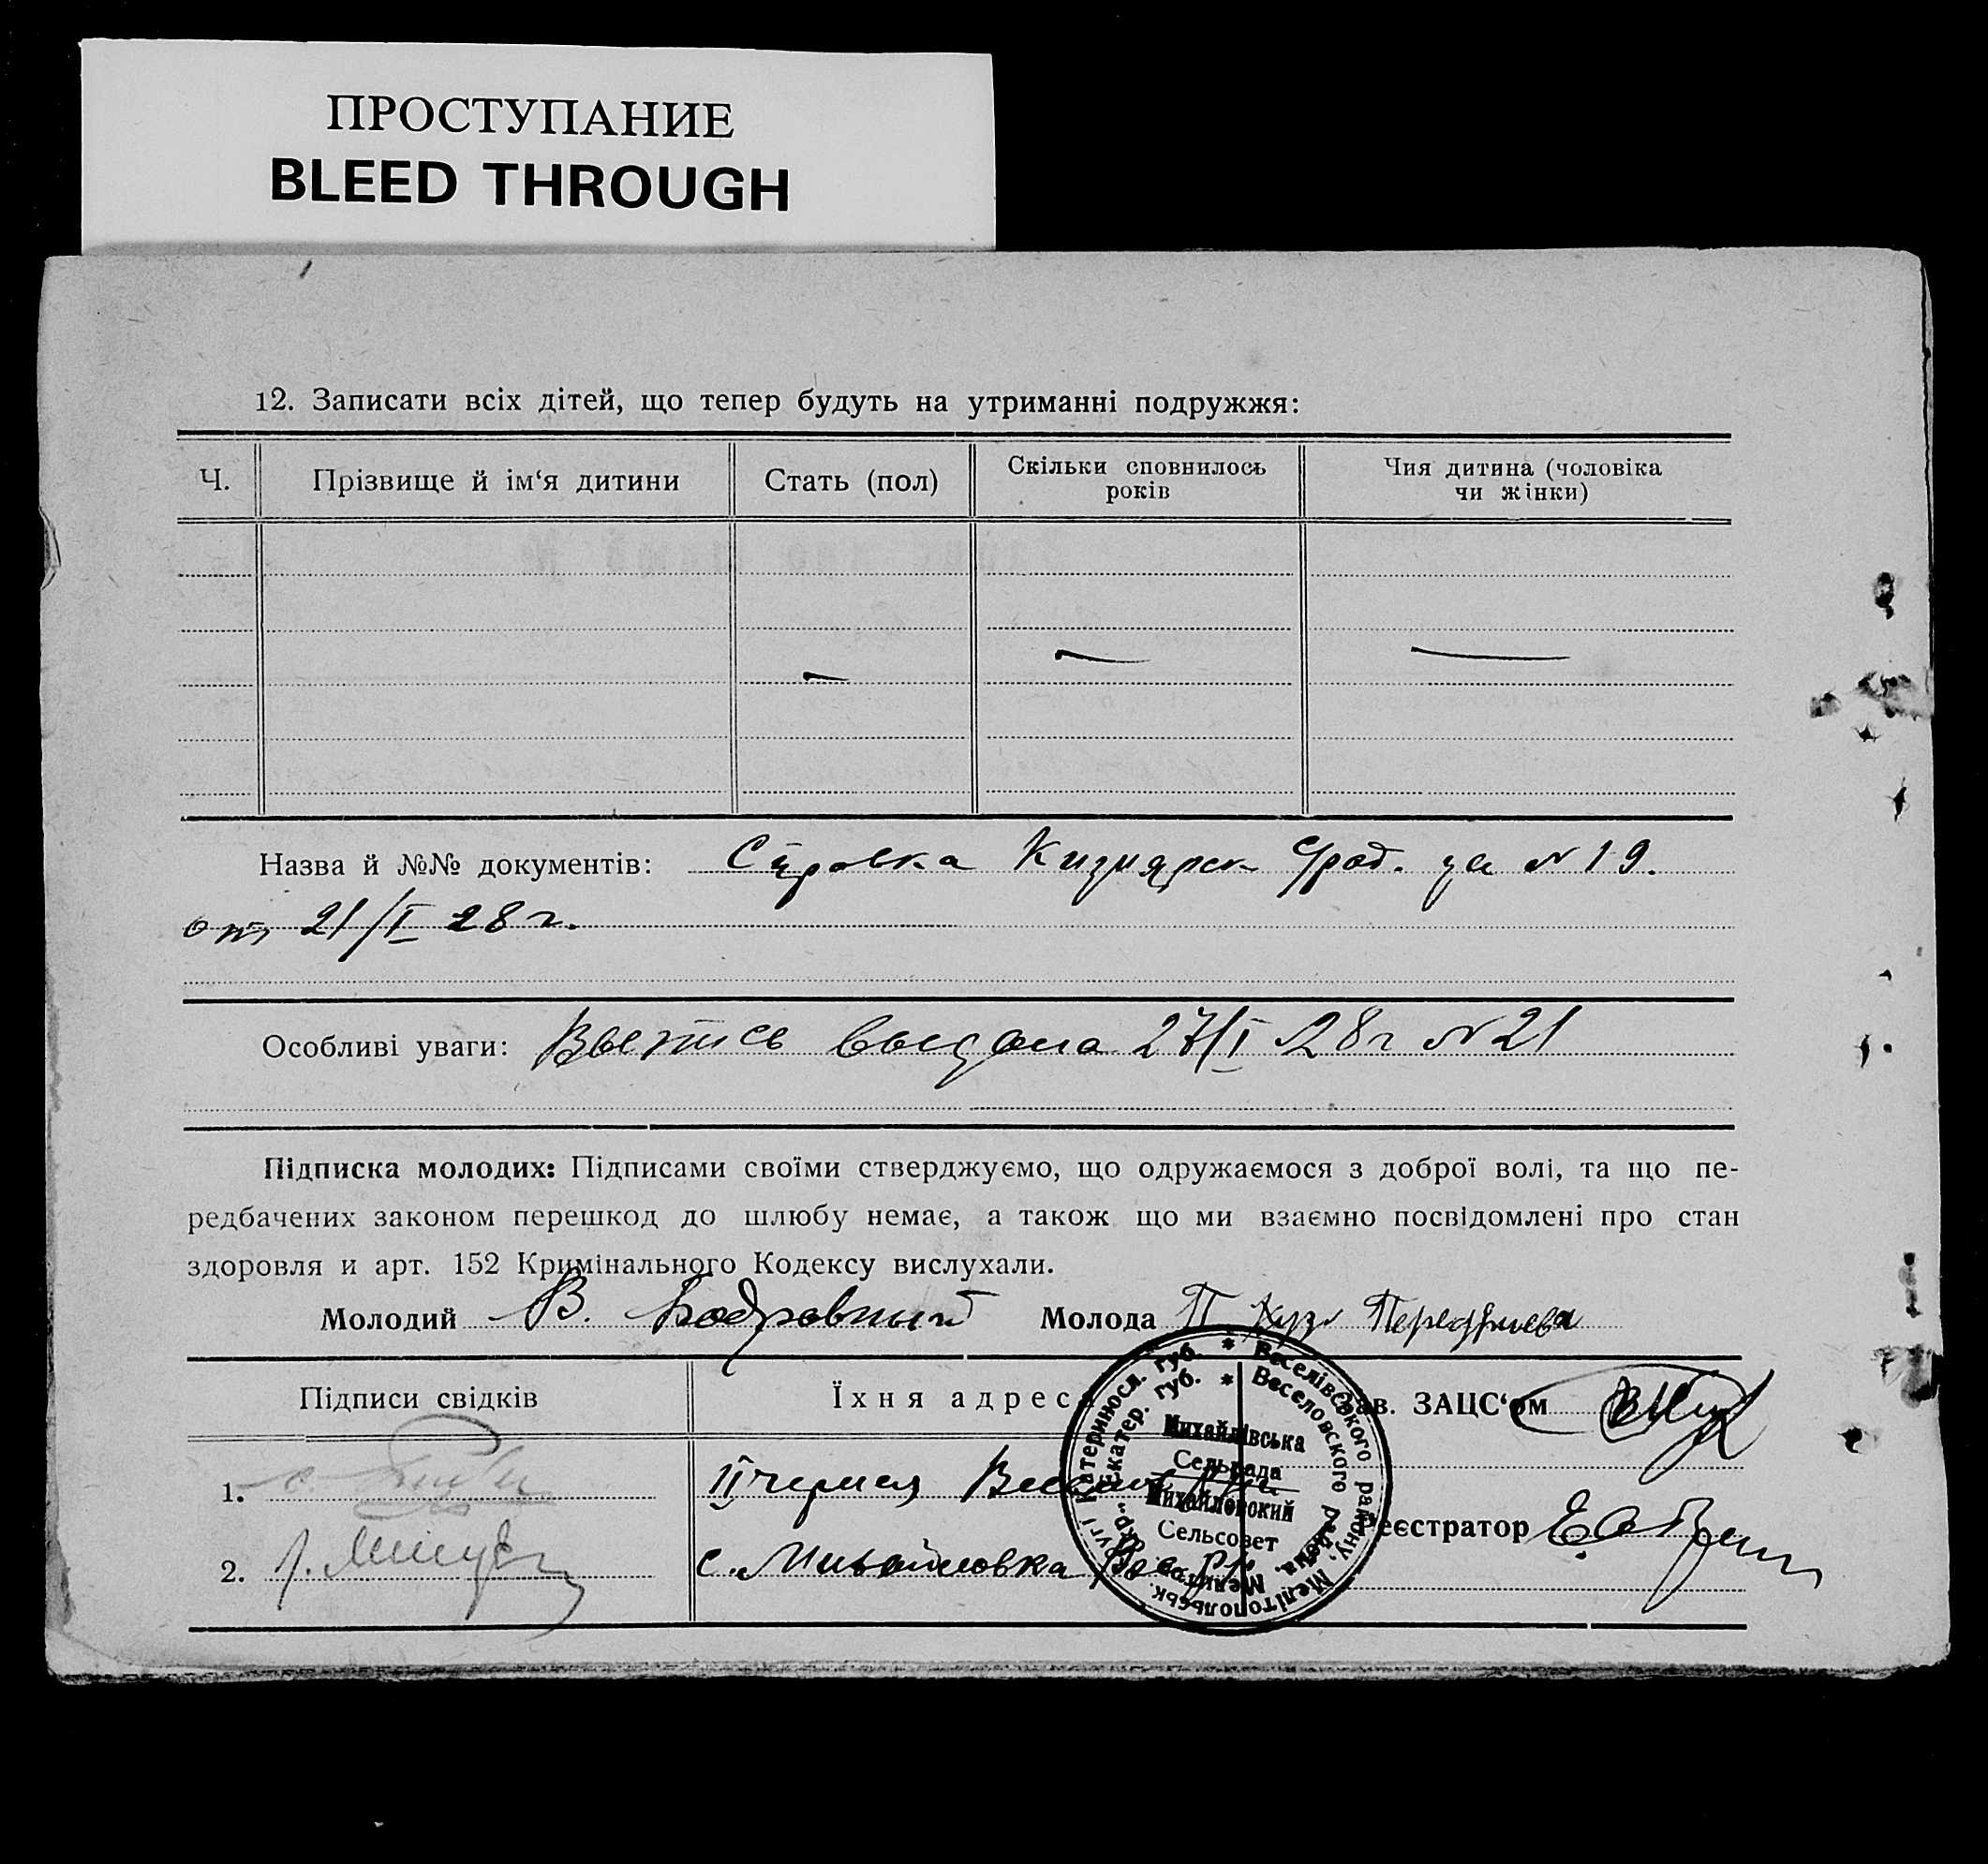 ПРОСТУПАНИЕ
BLEED THROUGH
12. Записати всіх дітей, що тепер будуть на утриманні подружжя:
Ч. Прізвище й ім‘я дитини Стать (пол) Скільки сповнилось років Чия дитина (чоловіка чи жінки)
Назва й №№ документів: Справка за №19.
от 21/I 28 г.
Особливі уваги: Выпись выдана 27/I 28 г №21
Підписка молодих: Підписами своїми стверджуємо, що одружаємося з доброї волі, та що пе-
редбачених законом перешкод до шлюбу немає, а також що ми взаємно посвідомлені про стан
здоровля и арт. 152 Кримінального Кодексу вислухали.
Молодий В. Молода П
Підписи свідків Їхня адреса Зав. ЗАЦС‘ом
1.
Реєстратор
2. с. Михайловка
Веселівського району, Мелітопольськ.
Катериносл. губ.
Веселовского района,
Екатер. губ.
Михайлівська
Сельрада
Михайловский
Сельсовет